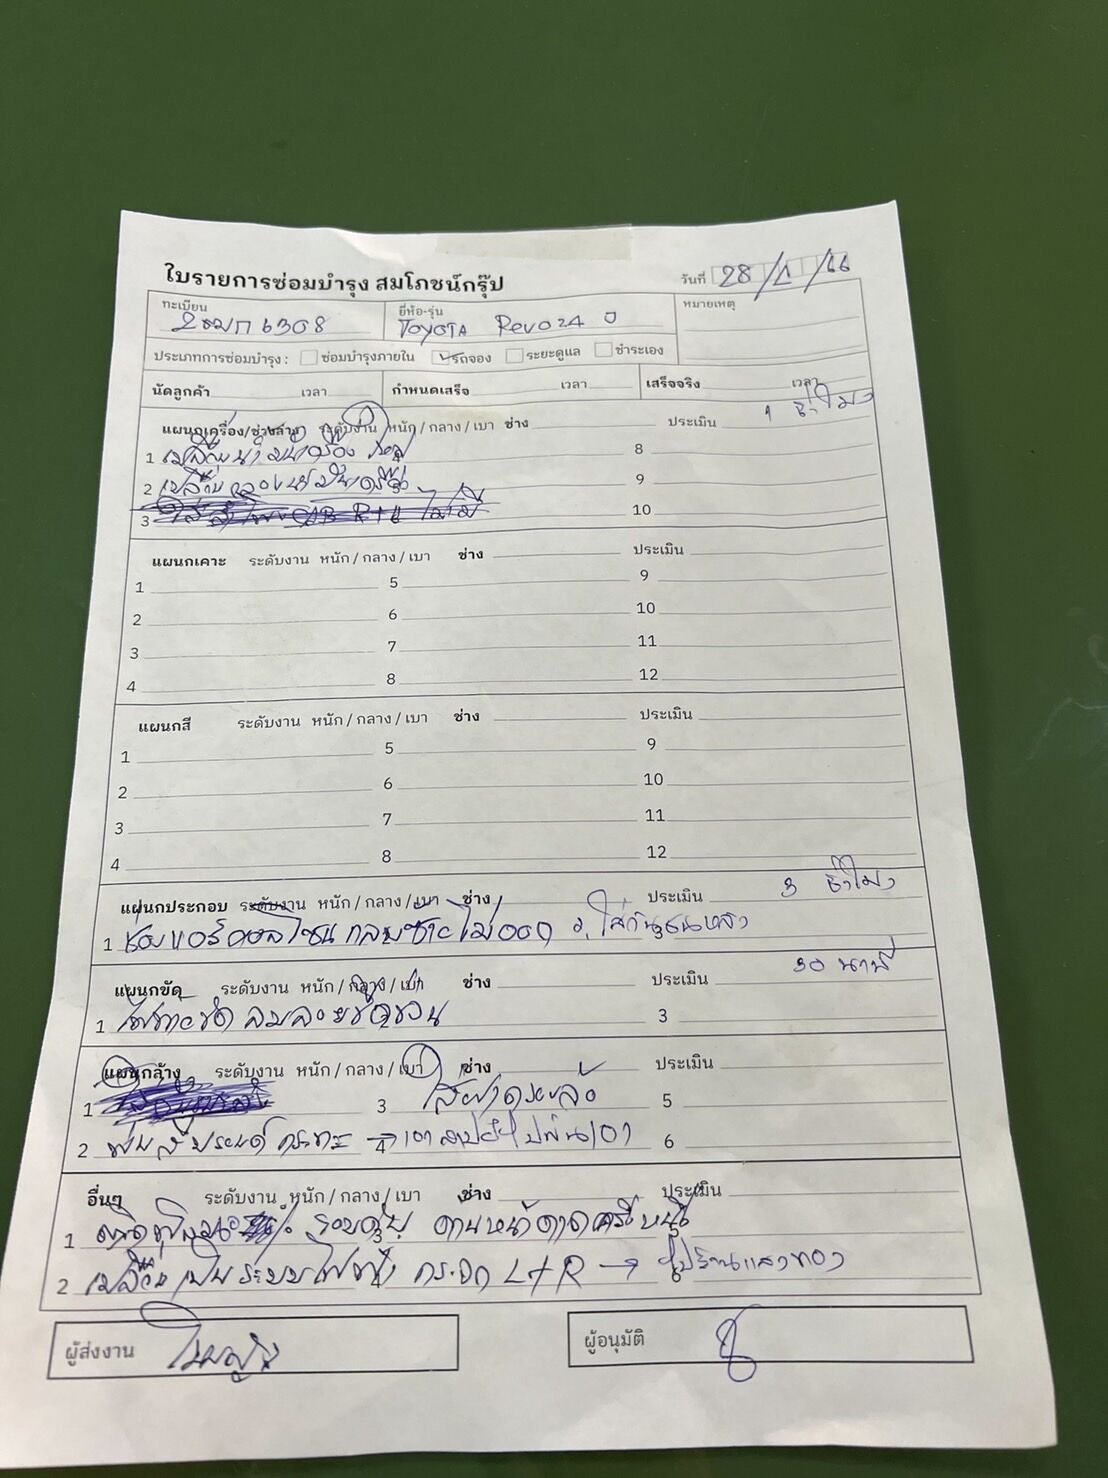 ใบรายการซ่อมบำรุง สมโภชน์กรุ๊ป
วันที่ 28/1/66
ทะเบียน ยี่ห้อ-รุ่น หมายเหตุ
6308 TOYOTA Revo 24
ประเภทการซ่อมบำรุง : ซ่อมบำรุงภายใน รถจอง ระยะดูแล ชำระเอง
นัดลูกค้า เวลา กำหนดเสร็จ เวลา เสร็จจริง เวลา
แผนกเครื่อง/ช่วงล่าง ระดับงาน หนัก / กลาง / เบา ช่าง ประเมิน 1 ชั่วโมง
1 เปลี่ยนน้ำมันเครื่อง 8
2 เปลี่ยนกรองน้ำมันเครื่อง 9
3 10
แผนกเคาะ ระดับงาน หนัก / กลาง / เบา ช่าง ประเมิน
1 5 9
2 6 10
3 7 11
4 8 12
แผนกสี ระดับงาน หนัก / กลาง / เบา ช่าง ประเมิน
1 5 9
2 6 10
3 7 11
4 8 12
แผนกประกอบ ระดับงาน หนัก / กลาง / เบา ช่าง ประเมิน 3 ชั่วโมง
1 ไม่ออก ใส่กันชนหลัง
แผนกขัด ระดับงาน หนัก / กลาง / เบา ช่าง ประเมิน 30 นาที
1 3
แผนกล้าง ระดับงาน หนัก / กลาง / เบา ช่าง ประเมิน
1 3 5
2 พ่นสี กระทะ → 4 6
อื่นๆ ระดับงาน หนัก / กลาง / เบา ช่าง ประเมิน
1 รอบคัน ด้านหน้า 3 5
2 เปลี่ยนเป็นระบบไฟฟ้า กระจก L+R → ไปร้านแสงทอง
ผู้ส่งงาน ผู้อนุมัติ